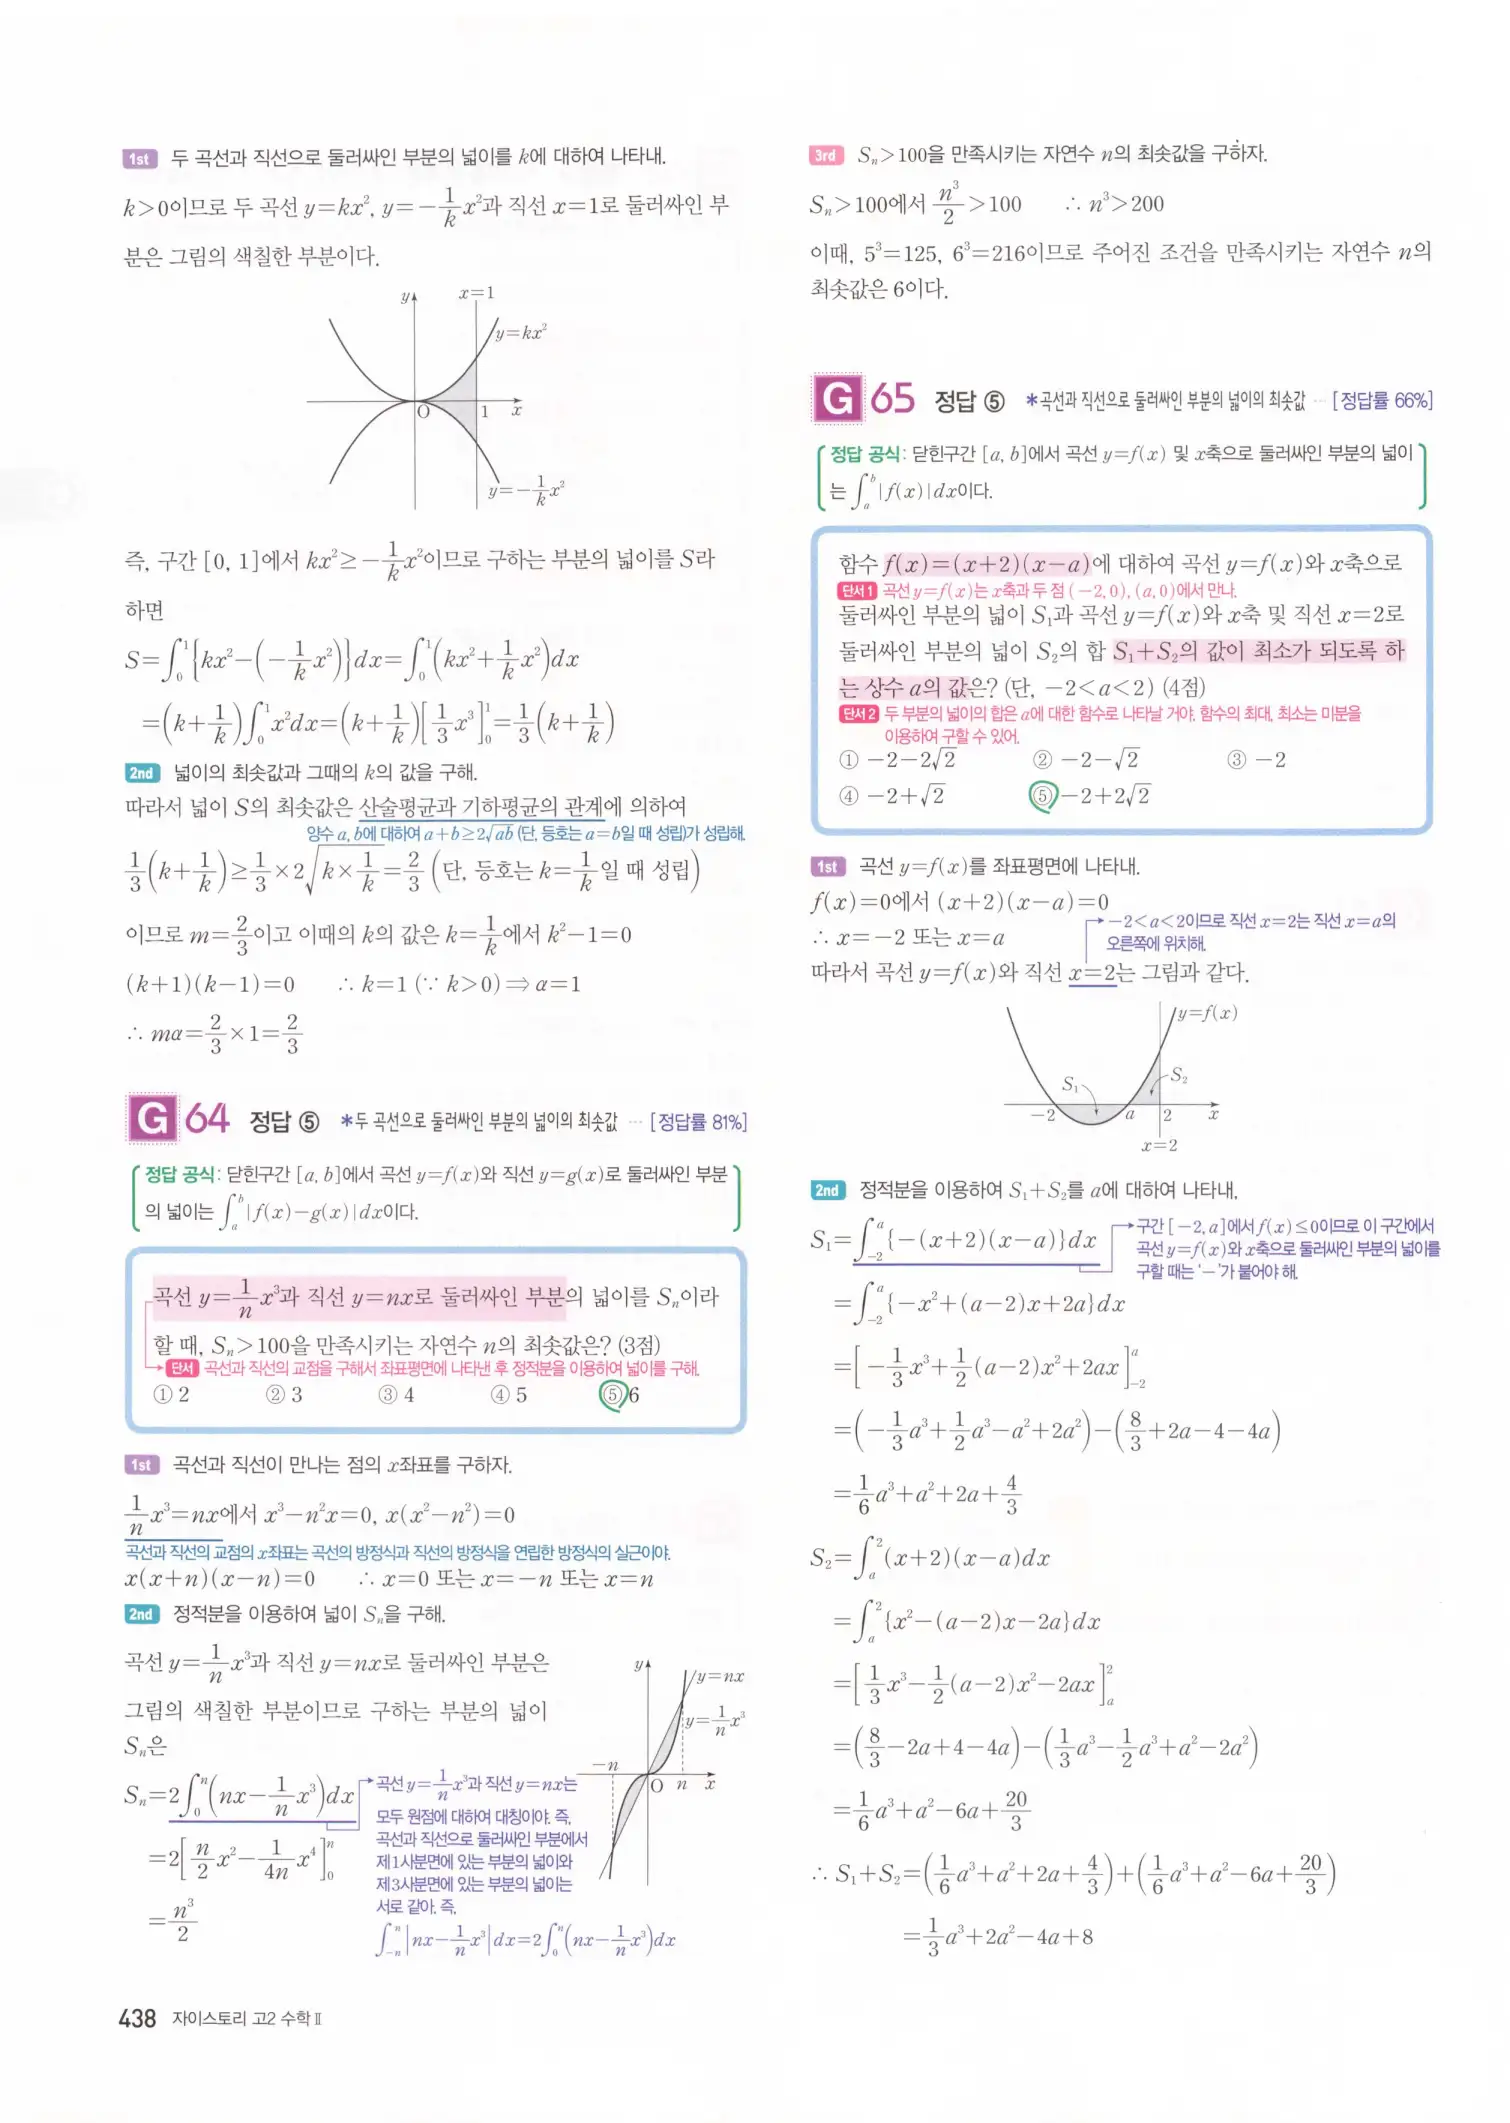 1st 두 곡선과 직선으로 둘러싸인 부분의 넓이를 k에 대하여 나타내.
k>0이므로 두 곡선 y=kx², y=-1/k x²과 직선 x=1로 둘러싸인 부
분은 그림의 색칠한 부분이다.
y x=1
y=kx²
O 1 x
y=-1/k x²
즉, 구간 [0, 1]에서 kx²≥-1/k x²이므로 구하는 부분의 넓이를 S라
하면
S=∫₀¹{kx²-(-1/k x²)}dx=∫₀¹(kx²+1/k x²)dx
=(k+1/k)∫₀¹x²dx=(k+1/k)[1/3 x³]₀¹=1/3(k+1/k)
2nd 넓이의 최솟값과 그때의 k의 값을 구해.
따라서 넓이 S의 최솟값은 산술평균과 기하평균의 관계에 의하여
양수 a, b에 대하여 a+b≥2√ab (단, 등호는 a=b일 때 성립)가 성립해.
1/3(k+1/k)≥1/3×2√(k×1/k)=2/3 (단, 등호는 k=1/k일 때 성립)
이므로 m=2/3이고 이때의 k의 값은 k=1/k에서 k²-1=0
(k+1)(k-1)=0 ∴ k=1 (∵ k>0) ⇒ α=1
∴ mα=2/3×1=2/3
G 64 정답 ⑤ *두 곡선으로 둘러싸인 부분의 넓이의 최솟값 … [정답률 81%]
정답 공식: 닫힌구간 [a, b]에서 곡선 y=f(x)와 직선 y=g(x)로 둘러싸인 부분
의 넓이는 ∫ₐᵇ|f(x)-g(x)|dx이다.
곡선 y=1/n x³과 직선 y=nx로 둘러싸인 부분의 넓이를 Sₙ이라
할 때, Sₙ>100을 만족시키는 자연수 n의 최솟값은? (3점)
단서 곡선과 직선의 교점을 구해서 좌표평면에 나타낸 후 정적분을 이용하여 넓이를 구해.
① 2 ② 3 ③ 4 ④ 5 ⑤ 6
1st 곡선과 직선이 만나는 점의 x좌표를 구하자.
1/n x³=nx에서 x³-n²x=0, x(x²-n²)=0
곡선과 직선의 교점의 x좌표는 곡선의 방정식과 직선의 방정식을 연립한 방정식의 실근이야.
x(x+n)(x-n)=0 ∴ x=0 또는 x=-n 또는 x=n
2nd 정적분을 이용하여 넓이 Sₙ을 구해.
곡선 y=1/n x³과 직선 y=nx로 둘러싸인 부분은
그림의 색칠한 부분이므로 구하는 부분의 넓이
Sₙ은
y y=nx
y=1/n x³
-n O n x
Sₙ=2∫₀ⁿ(nx-1/n x³)dx
=2[n/2 x²-1/4n x⁴]₀ⁿ
=n³/2
곡선 y=1/n x³과 직선 y=nx는
모두 원점에 대하여 대칭이야. 즉,
곡선과 직선으로 둘러싸인 부분에서
제1사분면에 있는 부분의 넓이와
제3사분면에 있는 부분의 넓이는
서로 같아. 즉,
∫₋ₙⁿ|nx-1/n x³|dx=2∫₀ⁿ(nx-1/n x³)dx
438 자이스토리 고2 수학Ⅱ
3rd Sₙ>100을 만족시키는 자연수 n의 최솟값을 구하자.
Sₙ>100에서 n³/2>100 ∴ n³>200
이때, 5³=125, 6³=216이므로 주어진 조건을 만족시키는 자연수 n의
최솟값은 6이다.
G 65 정답 ⑤ *곡선과 직선으로 둘러싸인 부분의 넓이의 최솟값 … [정답률 66%]
정답 공식: 닫힌구간 [a, b]에서 곡선 y=f(x) 및 x축으로 둘러싸인 부분의 넓이
는 ∫ₐᵇ|f(x)|dx이다.
함수 f(x)=(x+2)(x-a)에 대하여 곡선 y=f(x)와 x축으로
단서1 곡선 y=f(x)는 x축과 두 점 (-2, 0), (a, 0)에서 만나.
둘러싸인 부분의 넓이 S₁과 곡선 y=f(x)와 x축 및 직선 x=2로
둘러싸인 부분의 넓이 S₂의 합 S₁+S₂의 값이 최소가 되도록 하
는 상수 a의 값은? (단, -2<a<2) (4점)
단서2 두 부분의 넓이의 합은 a에 대한 함수로 나타날 거야. 함수의 최대, 최소는 미분을
이용하여 구할 수 있어.
① -2-2√2 ② -2-√2 ③ -2
④ -2+√2 ⑤ -2+2√2
1st 곡선 y=f(x)를 좌표평면에 나타내.
f(x)=0에서 (x+2)(x-a)=0
∴ x=-2 또는 x=a
-2<a<2이므로 직선 x=2는 직선 x=a의
오른쪽에 위치해.
따라서 곡선 y=f(x)와 직선 x=2는 그림과 같다.
y=f(x)
S₁ S₂
-2 a 2 x
x=2
2nd 정적분을 이용하여 S₁+S₂를 a에 대하여 나타내.
S₁=∫₋₂ᵃ{-(x+2)(x-a)}dx
구간 [-2, a]에서 f(x)≤0이므로 이 구간에서
곡선 y=f(x)와 x축으로 둘러싸인 부분의 넓이를
구할 때는 '-'가 붙어야 해.
=∫₋₂ᵃ{-x²+(a-2)x+2a}dx
=[-1/3 x³+1/2(a-2)x²+2ax]₋₂ᵃ
=(-1/3 a³+1/2 a³-a²+2a²)-(8/3+2a-4-4a)
=1/6 a³+a²+2a+4/3
S₂=∫ₐ²(x+2)(x-a)dx
=∫ₐ²{x²-(a-2)x-2a}dx
=[1/3 x³-1/2(a-2)x²-2ax]ₐ²
=(8/3-2a+4-4a)-(1/3 a³-1/2 a³+a²-2a²)
=1/6 a³+a²-6a+20/3
∴ S₁+S₂=(1/6 a³+a²+2a+4/3)+(1/6 a³+a²-6a+20/3)
=1/3 a³+2a²-4a+8